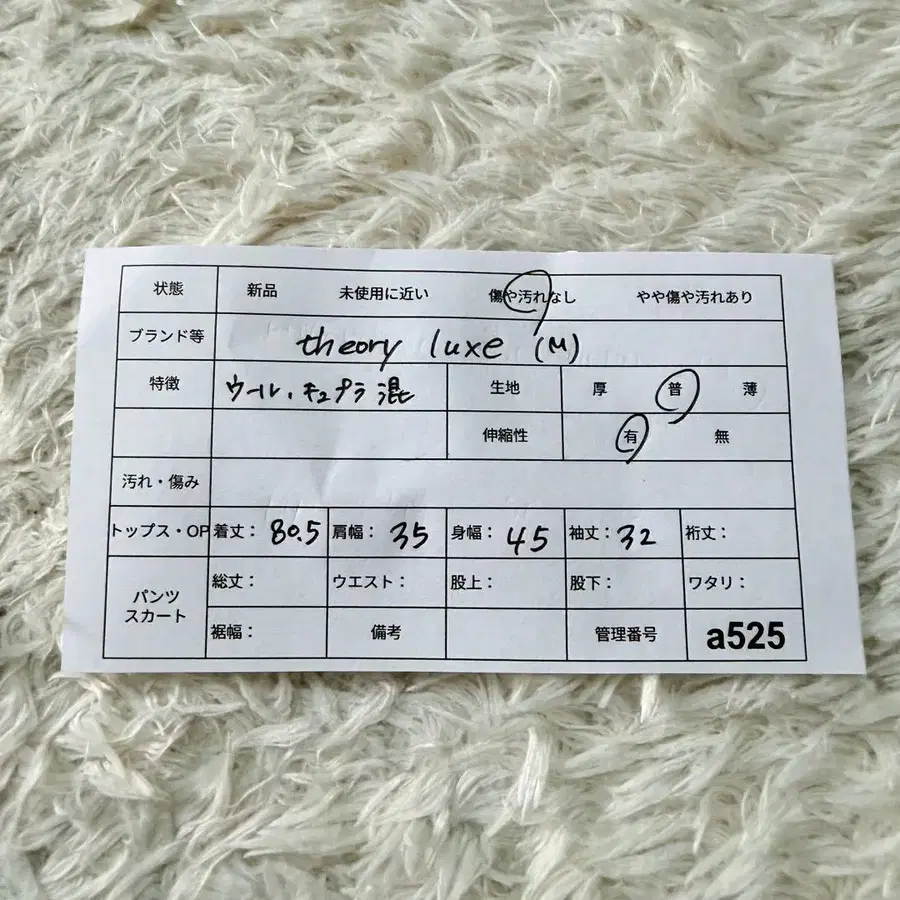 状態 新品 未使用に近い 傷や汚れなし やや傷や汚れあり
ブランド等 theory luxe (M)
特徴 ウール、キュプラ混 生地 厚 普 薄
伸縮性 有 無
汚れ・傷み
トップス・OP 着丈: 80.5 肩幅: 35 身幅: 45 袖丈: 32 裄丈:
パンツ スカート 総丈: ウエスト: 股上: 股下: ワタリ:
裾幅: 備考 管理番号 a525